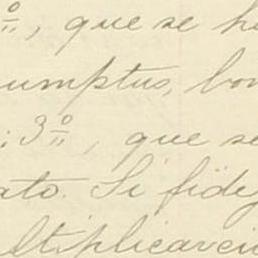 º, que se h
umptus, bon
: 3º, que se
ato. Si fidey
ltiplicavei